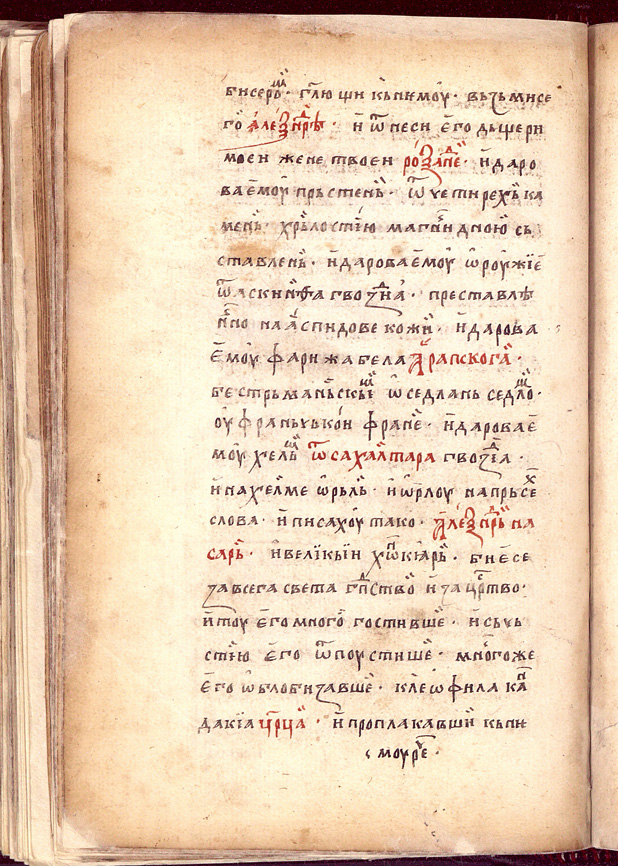 бисеромь · глю щи кьнѥмоу · вьзьми се
го алеѯандре · и ѿнеси его дьщери
моеи жене твоеи роѯанде · и даро
ва емоу прьстень · ѿ четирехь ка
мень · хрьлостїю магнидною сь
ставлень · и дарова емоу ѡроужїе
гвозда · преставлѣ
нно на аспидове кожи · и дарова
емоу фарижа бела арапскога ·
ѡседлань седло ·
и дарова е
моу хель ѿ сахалтара гвоздїа ·
и на хелме ѡрьль · и ѡрлоу на прьсе
слова · и писахоу тако · алеѯандрь на
сарь · и велїкыи · би есе
за всега света гпⷭство и за црⷭтво ·
и тоу его много гостивше · и сьчь
стїю его ѿпоустише · много же
его ѡблобизавше · клеѡфила кан
дакїа црца · и проплакавши кьнѥ
моу рече ·